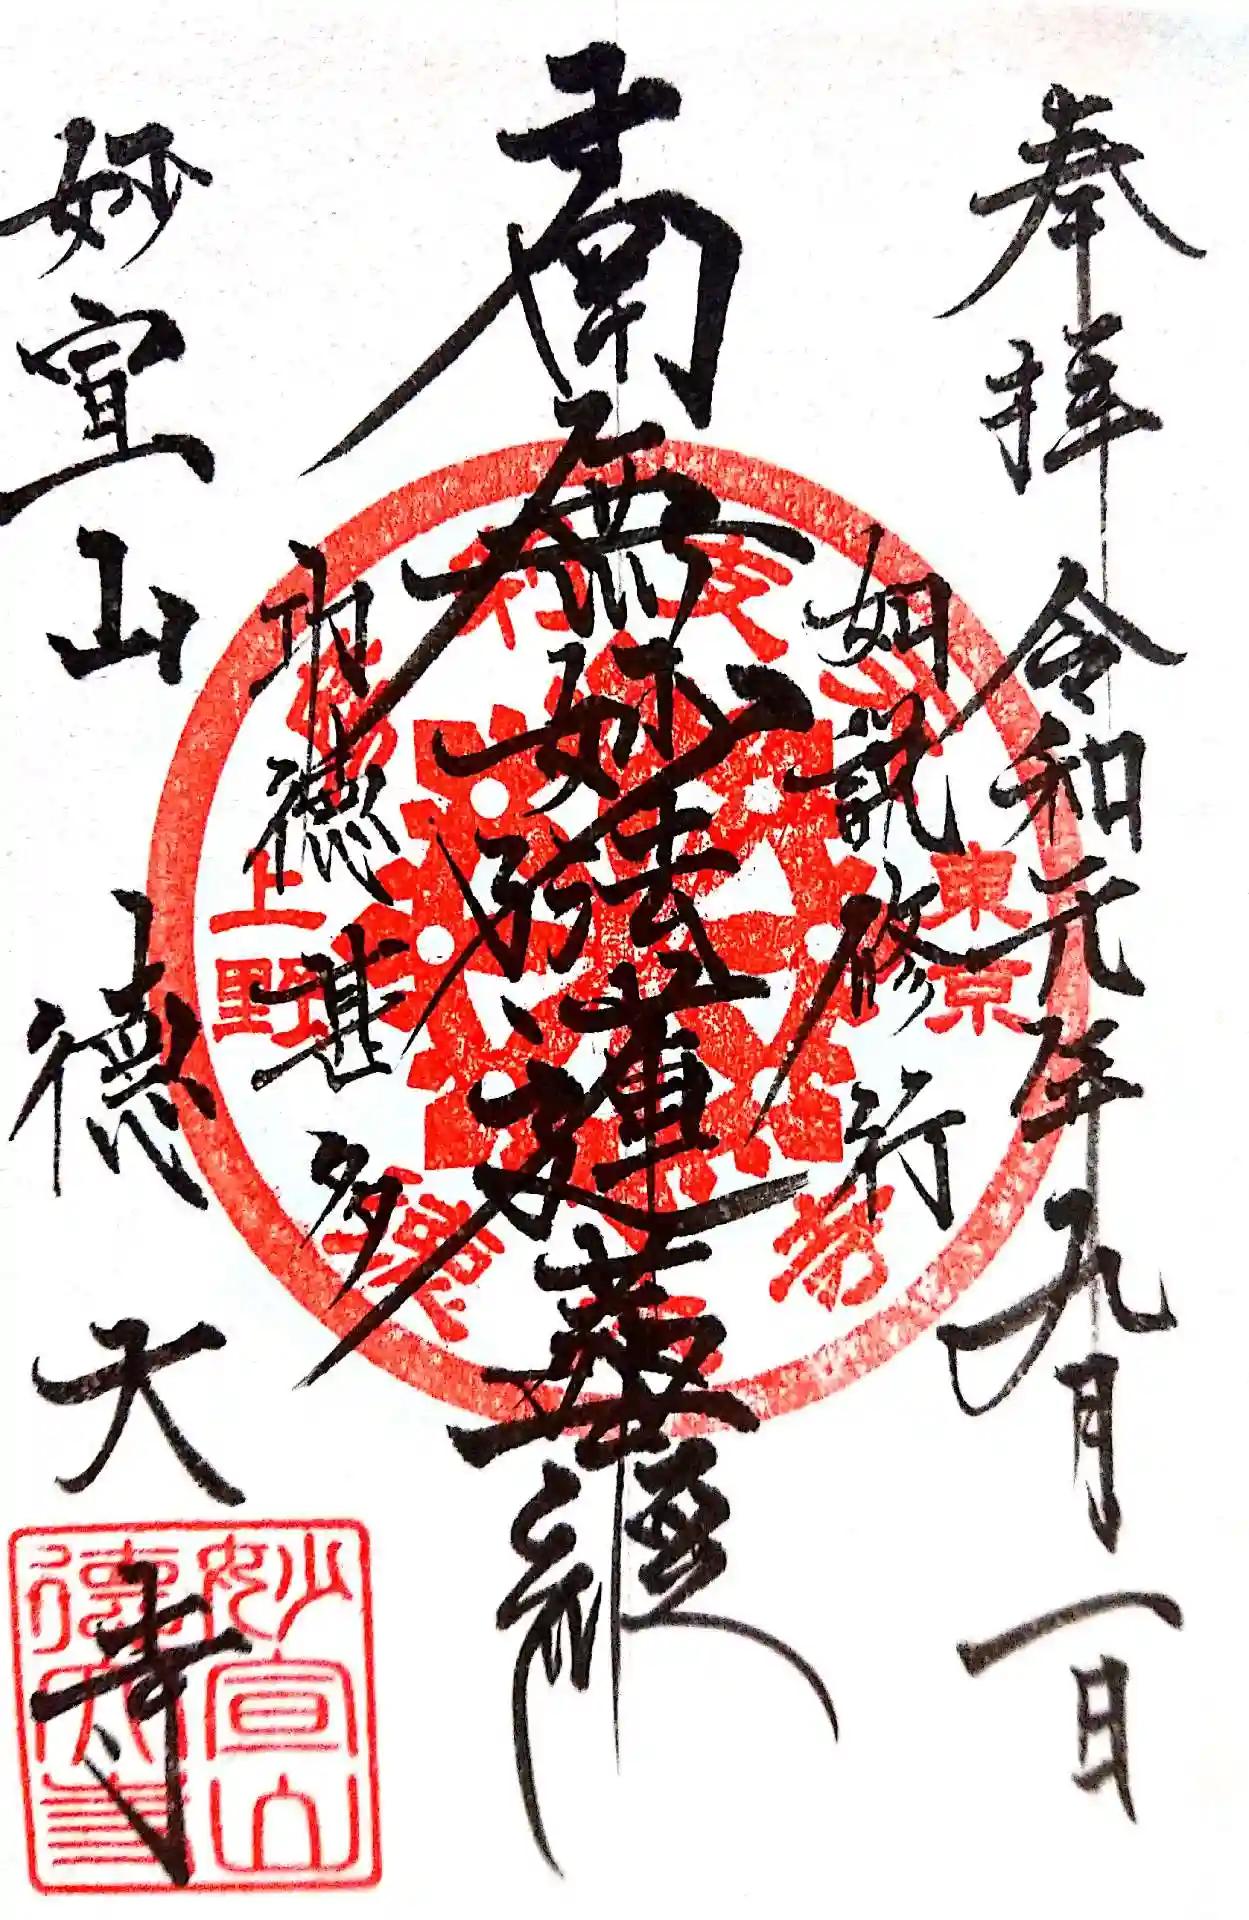 奉拝 令和元年九月一日
如説修行
南無妙法蓮華経
功徳甚多
妙宣山 徳大寺
東京
上野
妙宣山
徳大寺